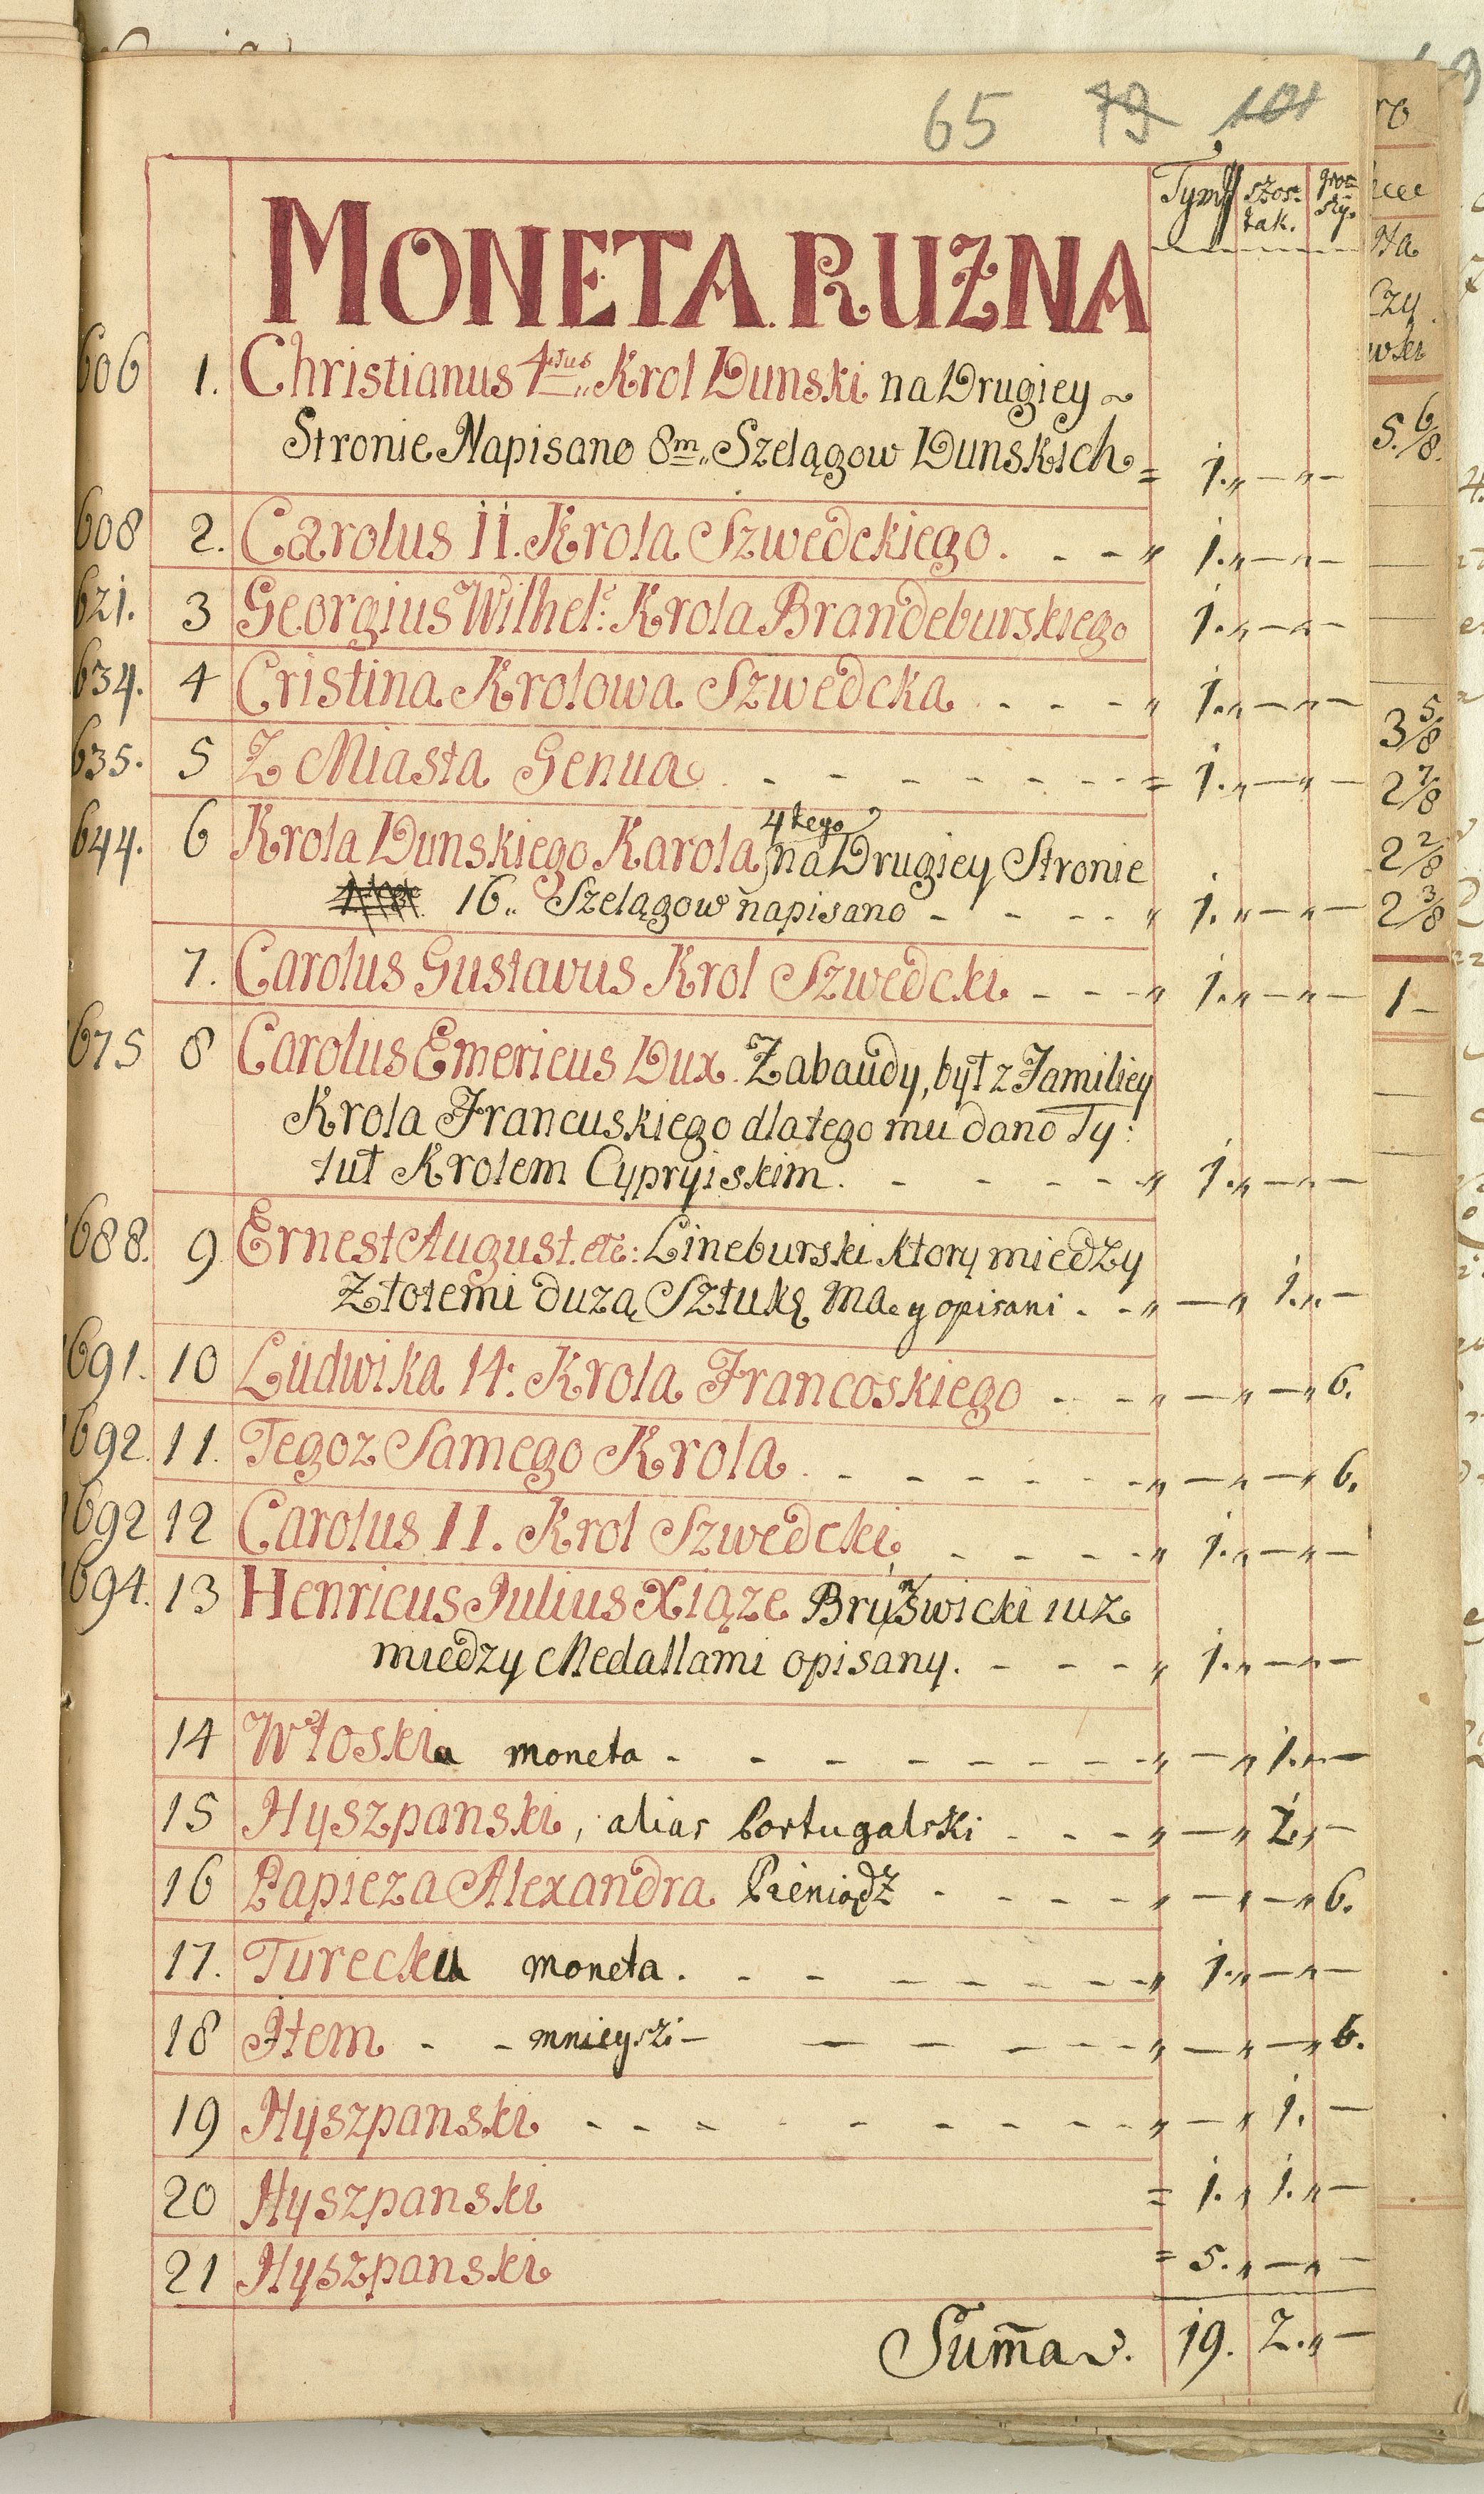 65 79 101
Tymf szos: tak. gro= szy.
MONETA RUZNA
606 1. Christianus 4tus „ Krol Dunski na Drugiey ~
Stronie Napisano 8m„ Szelągow Dunskich = 1.„ — „ —
608 2. Carolus 11. Krola Szwedckiego. - - „ 1.„ — „ —
621. 3 Georgius Wilhel: Krola Brandeburskiego 1.„ — „ —
634. 4 Cristina Krolowa Szwedcka - - - „ 1.„ — „ —
635. 5 Z Miasta Genua - - - - - - - = 1.„ — „ —
644. 6 Krola Dunskiego Karola 4tego na Drugiey Stronie
16„ Szelągow napisano - - - - „ 1.„ — „ —
7. Carolus Gustavus Krol Szwedcki - - - „ 1.„ — „ —
675 8 Carolus Emericus Dux. Zabaudy, był z Familiey
Krola Francuskiego dlatego mu dano Ty:
tuł Krolem Cypryiskim. - - - - „ 1.„ — „ —
688. 9 Ernest August. etc: Lineburski ktory miedzy
Złotemi duzą Sztukę ma. y opisani . - „ — „ 1.„ —
691. 10 Ludwika 14: Krola Francoskiego - - - „ — „ — „ 6.
692. 11. Tegoz Samego Krola. - - - - - - „ — „ — „ 6.
692 12 Carolus 11. Krol Szwedcki, - - - - „ 1.„ — „ —
694. 13 Henricus Julius Xiąze Brunszwicki iuz
miedzy Medallami opisany. - - - - „ 1.„ — „ —
14 Włoskia moneta - - - - - - - - „ — „ 1.„ —
15 Hyszpanski, alias Portugalski - - - „ — „ 2.„ —
16 Papieza Alexandra Pieniądz - - - - „ — „ — „ 6.
17. Turecka moneta. - - - - - - - „ 1.„ — „ —
18 Item - - mnieyszi — — — - - - „ — „ — „ 6.
19 Hyszpanski - - - - - - - - - „ — „ 1. —
20 Hyszpanski = 1.„ 1.„ —
21 Hyszpanski = 5.„ — „ —
Sum̃a. 19. 2.„ —
5. 6/8.
3 5/8
2 7/8
2 2/8
2 3/8
1 -